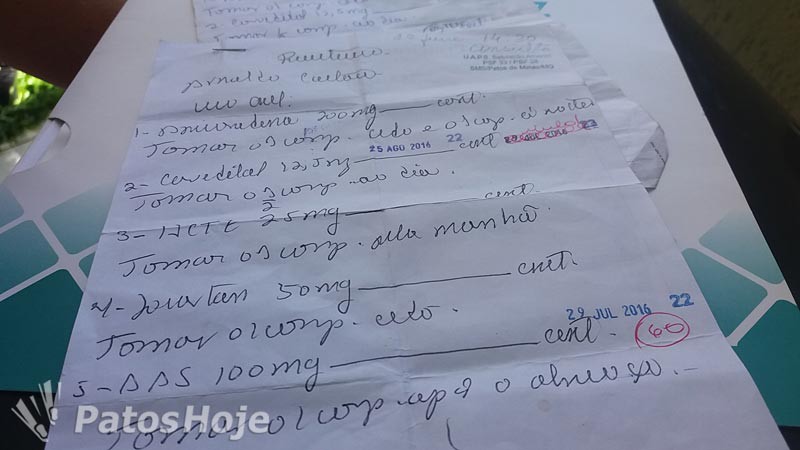 Tomar 01 comp
2. Carvedilol 12,5mg
Tomar ½ comp. ao dia
Consulta
U.A.P.S.
SMS/Patos de Minas/MG
Arnaldo
uso oral.
1- Amiodarona 200mg cont.
Tomar 01 comp. cedo e 01 comp. à noite
25 AGO 2016 22
2- Carvedilol 12,5mg cont 2016 22
Tomar 01/2 comp. ao dia.
3- HCTZ 25mg cont.
Tomar 01 comp. pela manhã.
4- Losartan 50mg cont.
Tomar 01 comp. cedo.
29 JUL 2016 22
5- AAS 100mg cont. 60
Tomar 01 comp. após o almoço.
PatosHoje